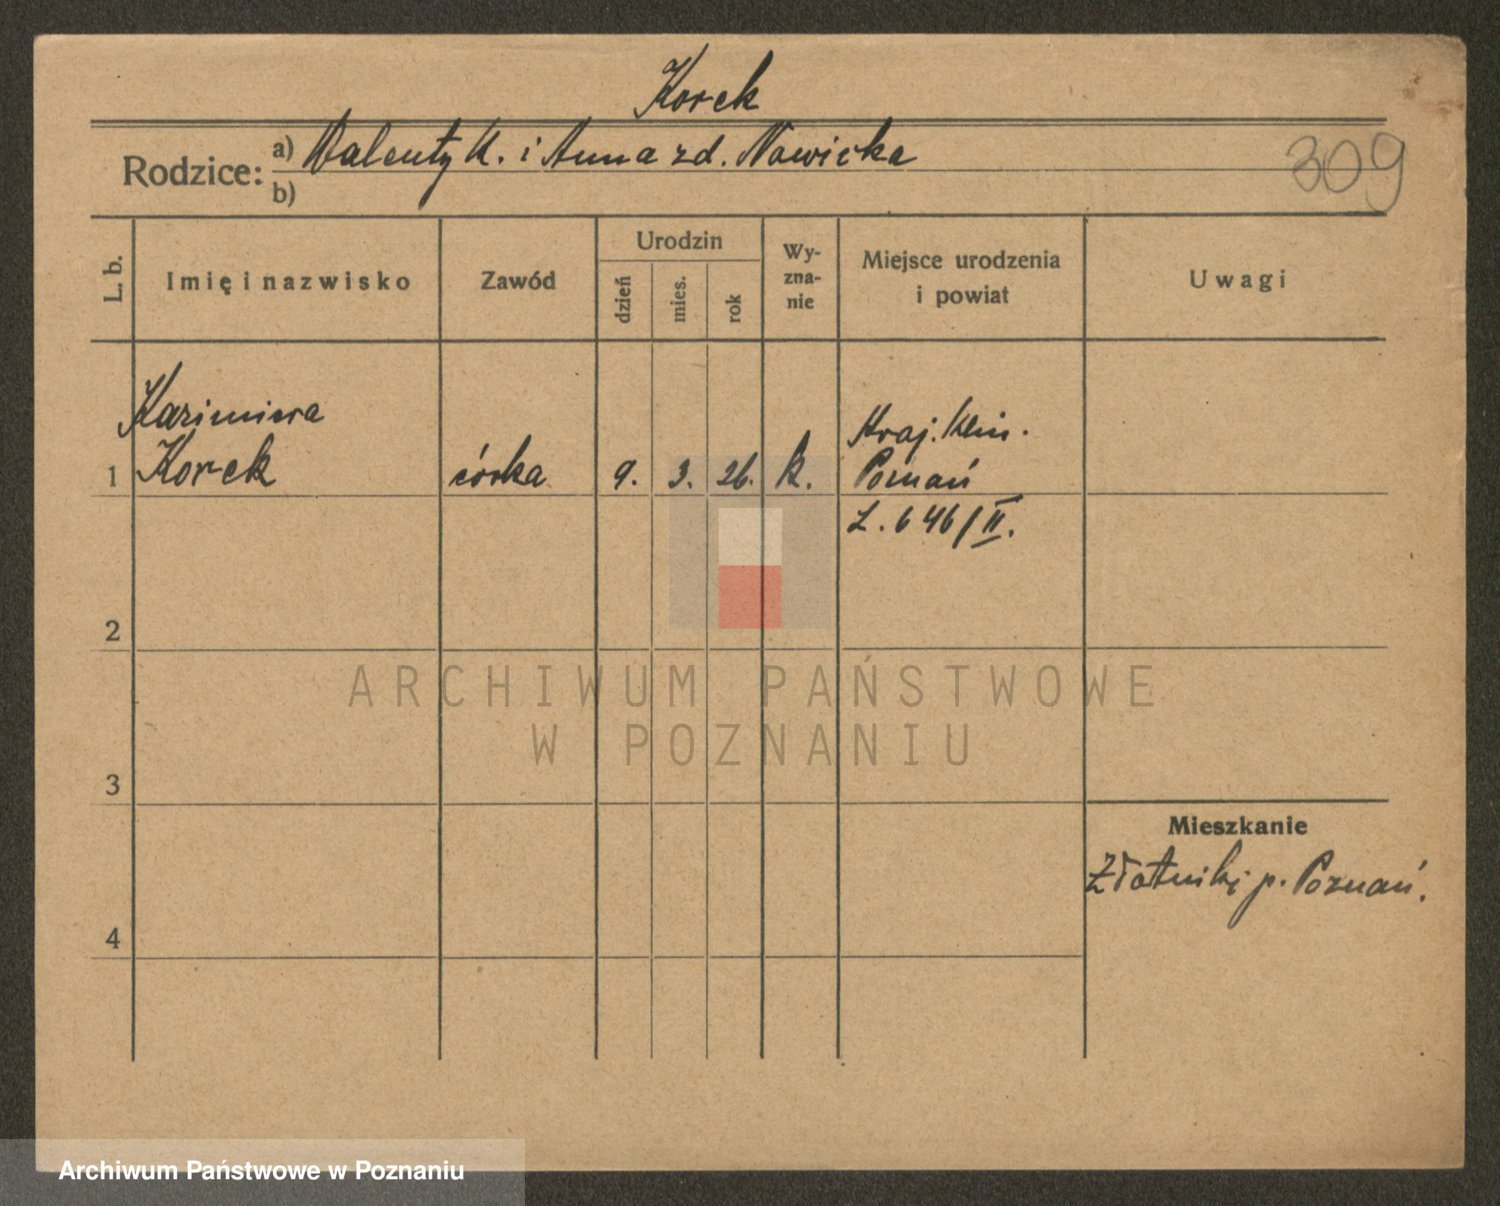 Korek
Rodzice: a) Walenty K. i Anna zd. Nowicka
b)
309
L. b.
Imię i nazwisko
Zawód
Urodzin
dzień
mies.
rok
Wy-
zna-
nie
Miejsce urodzenia
i powiat
Uwagi
Kazimiera
1 Korek
córka
9. 3. 26. k.
Kraj. Klin.
Poznań
L. 646/II.
2
3
4
Mieszkanie
Złotniki p. Poznań.
ARCHIWUM PAŃSTWOWE
W POZNANIU
Archiwum Państwowe w Poznaniu